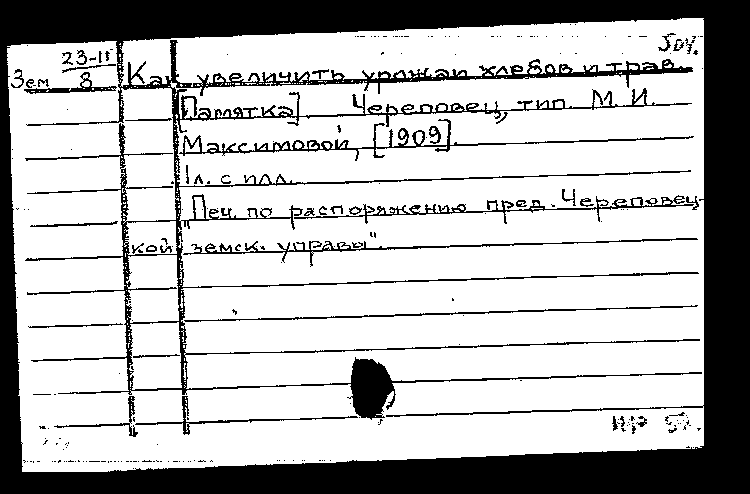 23-II
Зем 8 Как увеличить урожаи хлебов и трав.
[Памятка]. Череповец, тип. М. И.
Максимовой, [1909].
1л. с илл.
"Печ. по распоряжению пред. Череповец-
кой земск. управы".